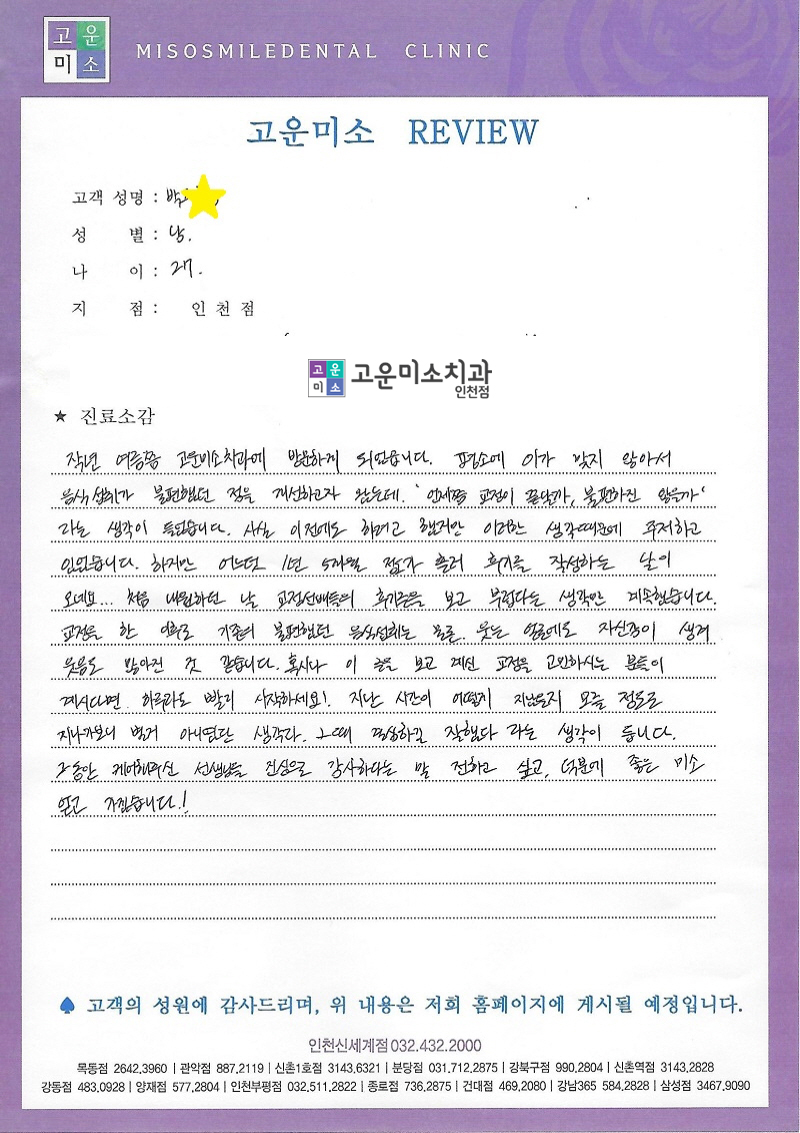 고운
미소
MISOSMILEDENTAL CLINIC
고운미소 REVIEW
고객 성명 : 박
성 별 : 남.
나 이 : 27.
지 점 : 인 천 점
고운
미소
고운미소치과
인천점
★ 진료소감
작년 여름쯤 고운미소치과에 방문하게 되었습니다. 평소에 이가 맞지 않아서
음식섭취가 불편했던 점을 개선하고자 왔는데. '언제쯤 교정이 끝날까, 불편하진 않을까'
라는 생각이 들었습니다. 사실 이전에도 하려고 했지만 이러한 생각때문에 주저하고
있었습니다. 하지만 어느덧 1년 5개월 정도가 흘러 후기를 작성하는 날이
오네요... 처음 내원하던 날 교정선배들의 후기들을 보고 부럽다는 생각만 계속했습니다.
교정을 한 이후로 기존의 불편했던 음식섭취는 물론. 웃는 얼굴에도 자신감이 생겨
웃음도 많아진 것 같습니다. 혹시나 이 글을 보고 계신 교정을 고민하시는 분들이
계시다면 하루라도 빨리 시작하세요! 지난 시간이 어떻게 지났는지 모를 정도로
지나가보니 별거 아니었단 생각과. 그때 결심하길 잘했다 라는 생각이 듭니다.
그동안 케어해주신 선생님들 진심으로 감사하다는 말 전하고 싶고, 덕분에 좋은 미소
얻고 가겠습니다.!
♠ 고객의 성원에 감사드리며, 위 내용은 저희 홈페이지에 게시될 예정입니다.
인천신세계점 032.432.2000
목동점 2642,3960 | 관악점 887,2119 | 신촌1호점 3143,6321 | 분당점 031.712,2875 | 강북구점 990,2804 | 신촌역점 3143,2828
강동점 483,0928 | 양재점 577,2804 | 인천부평점 032,511,2822 | 종로접 736,2875 | 건대점 469,2080 | 강남365 584,2828 | 삼성점 3467,9090